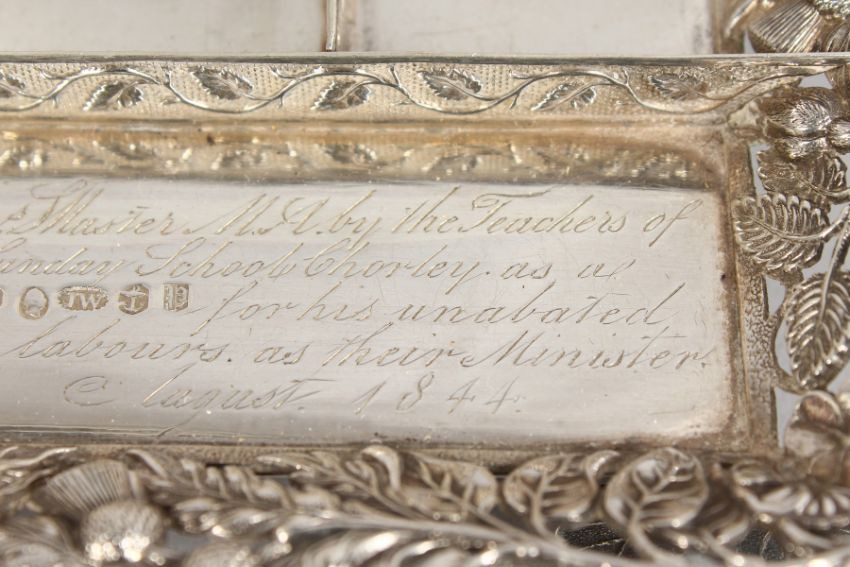 Master M.A. by the Teachers of
Sunday School Chorley. as a
IW for his unabated
labours. as their Minister.
August. 1844.